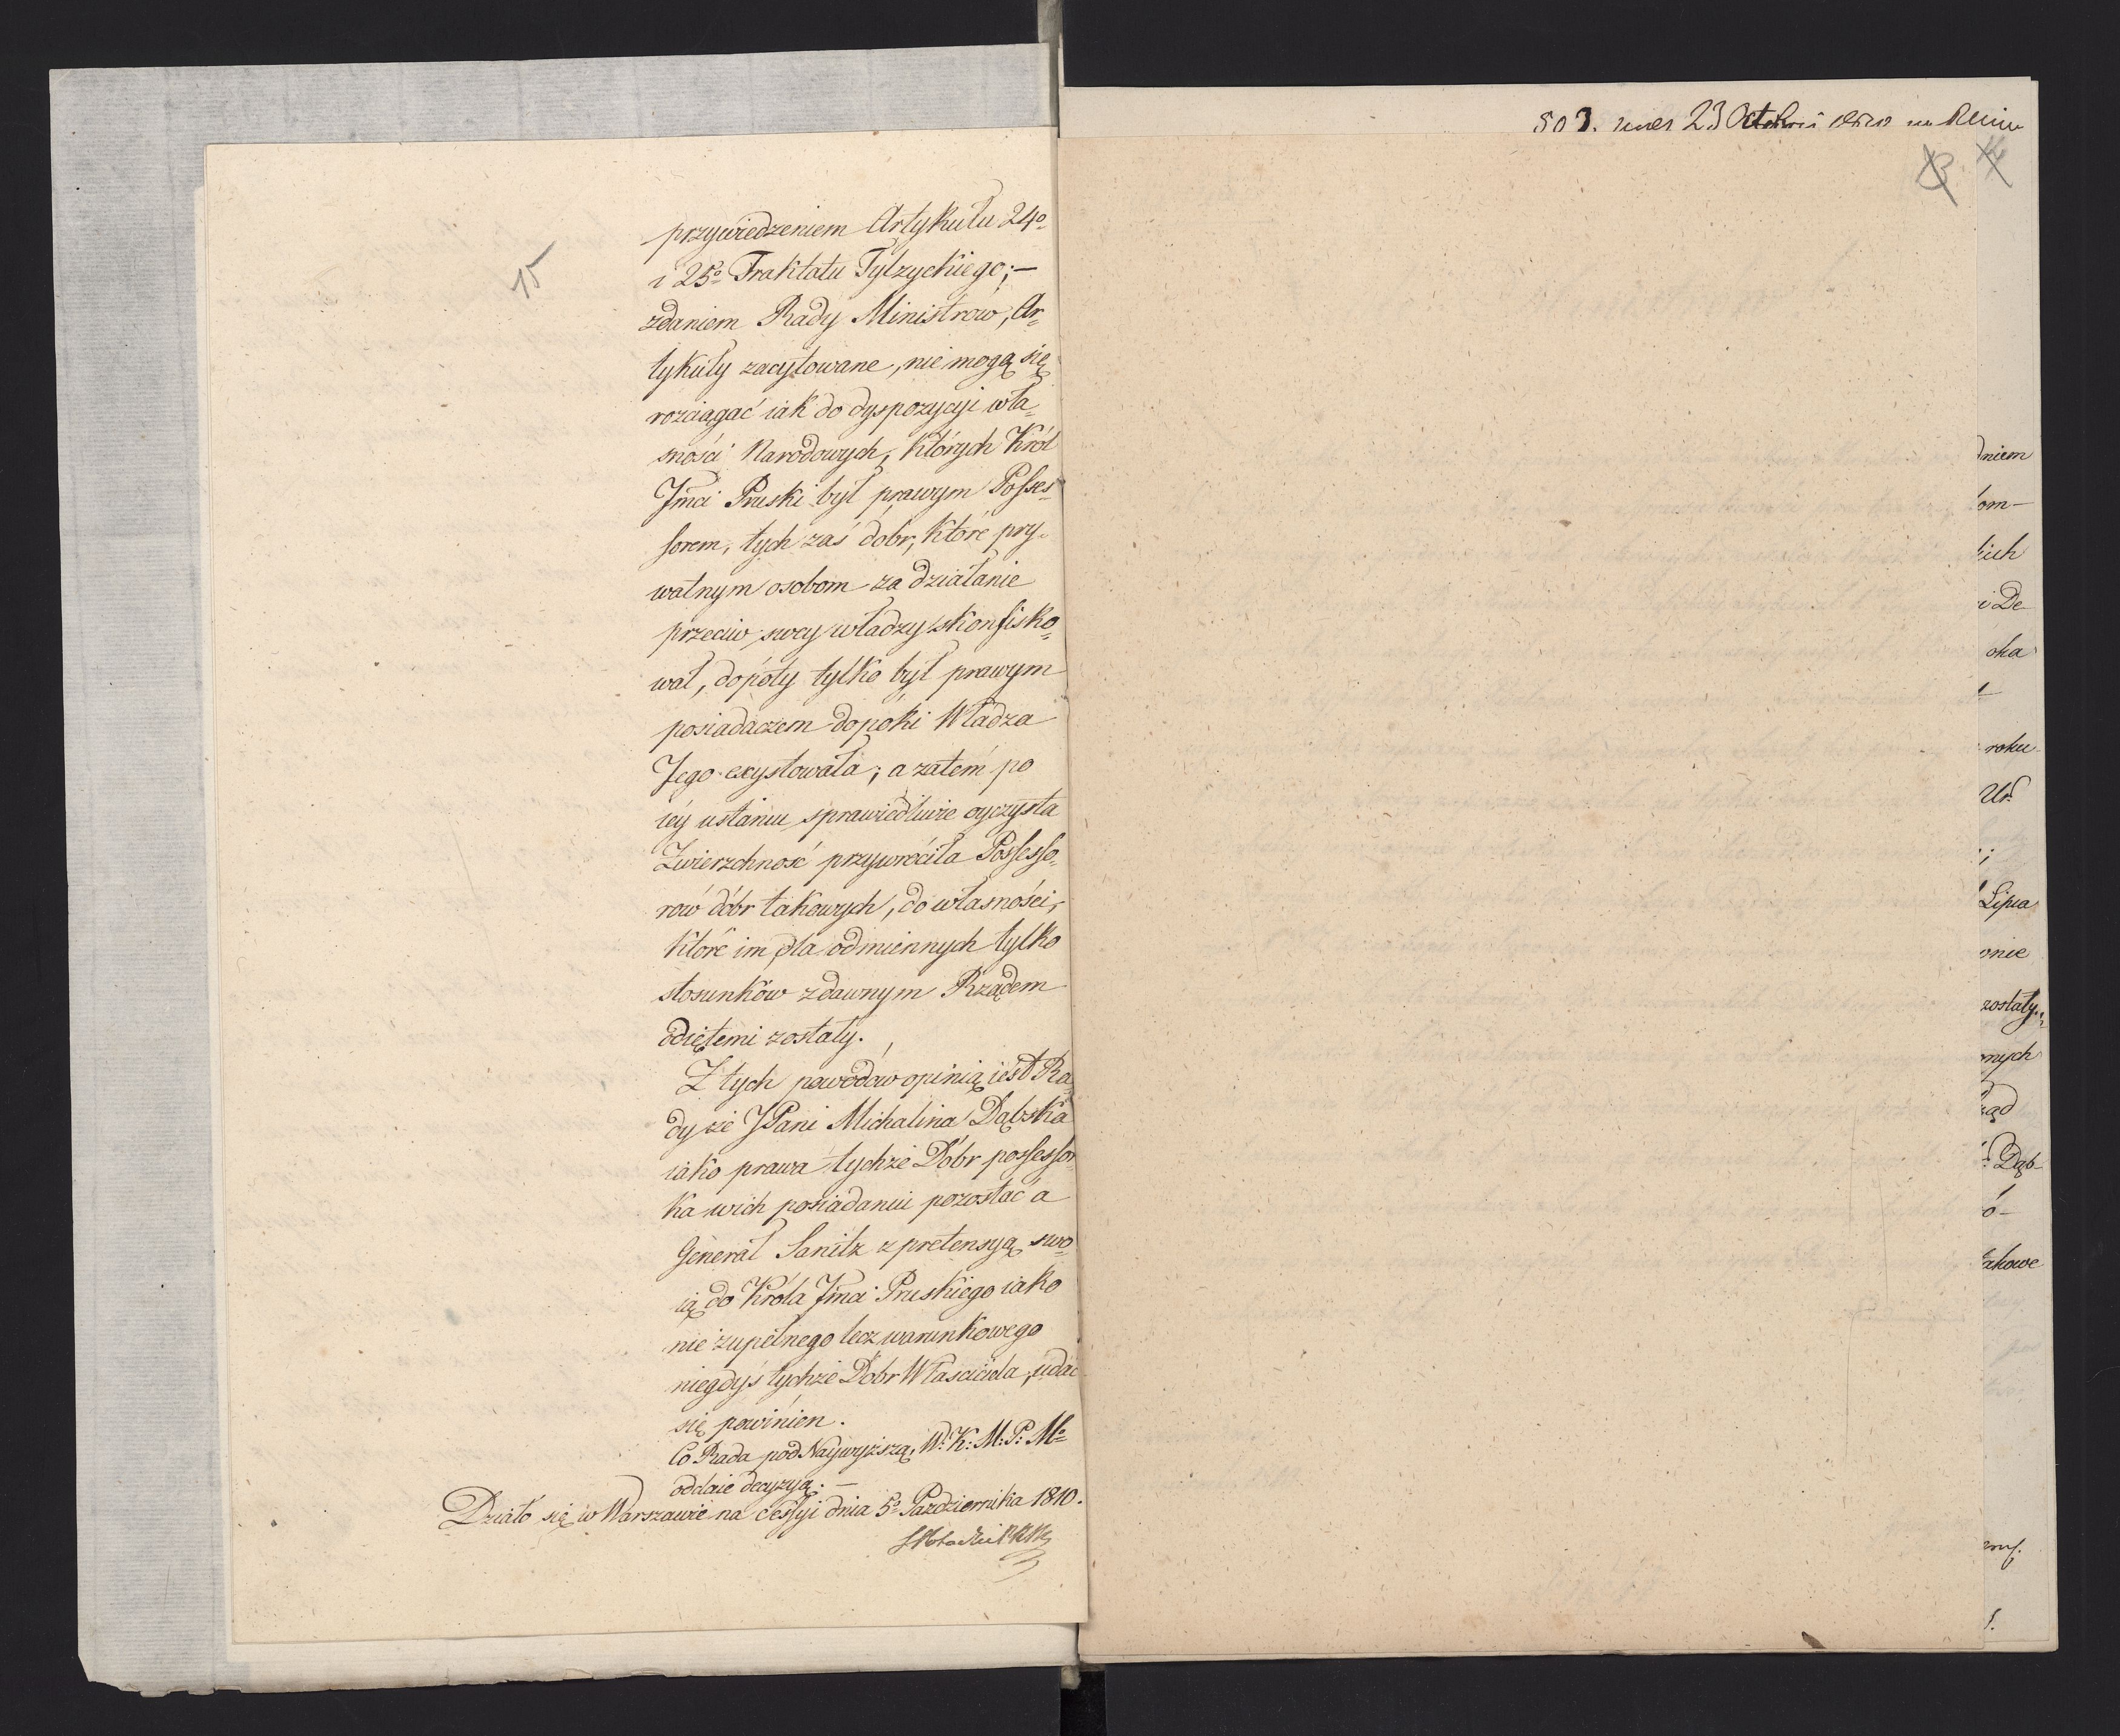 15
przywiedzeniem Artykułu 24º
i 25º Traktatu Tylzyckiego; –
zdaniem Rady Ministrów, Ar=
tykuły zacytowane, nie mogą się
rozciągać iak do dyspozycyi wła=
sności Narodowych, których Król
Jmci Pruski był prawym Posses=
sorem, tych zaś dóbr, które pry=
watnym osobom za działanie
przeciw swey władzy skonfisko=
wał, dopóty tylko był prawym
posiadaczem dopóki Władza
Jego exystowała; a zatém po
iey ustaniu sprawiedliwie oyczysta
Zwierzchność przywróciła Possesso=
rów dóbr takowych, do własności,
które im dla odmiennych tylko
stosunków z dawnym Rządem
odiętemi zostały.
Z tych powodów opinią iest Ra=
dy że JPani Michalina Dąbska
iako prawa tychże Dóbr possessor=
ka w ich posiadaniu pozostać a
Generał Sanitz z pretensyą swo=
ią do Króla Jmci Pruskiego iako
nie zupełnego lecz warunkowego
niegdyś tychże Dóbr Właściciela, udać
się powinien.
Co Rada pod Naywyższą, W: K: M: P: Mº
oddaie decyzyą. –
Działo się w Warszawie na Sessyi dnia 5º Października 1810.
503. 23 Octobris
dniem
om–
kich
i De
oka
roku
Ur.
Lipca
onie
zostały.
onych
ząd
Dąb–
ó–
akowe